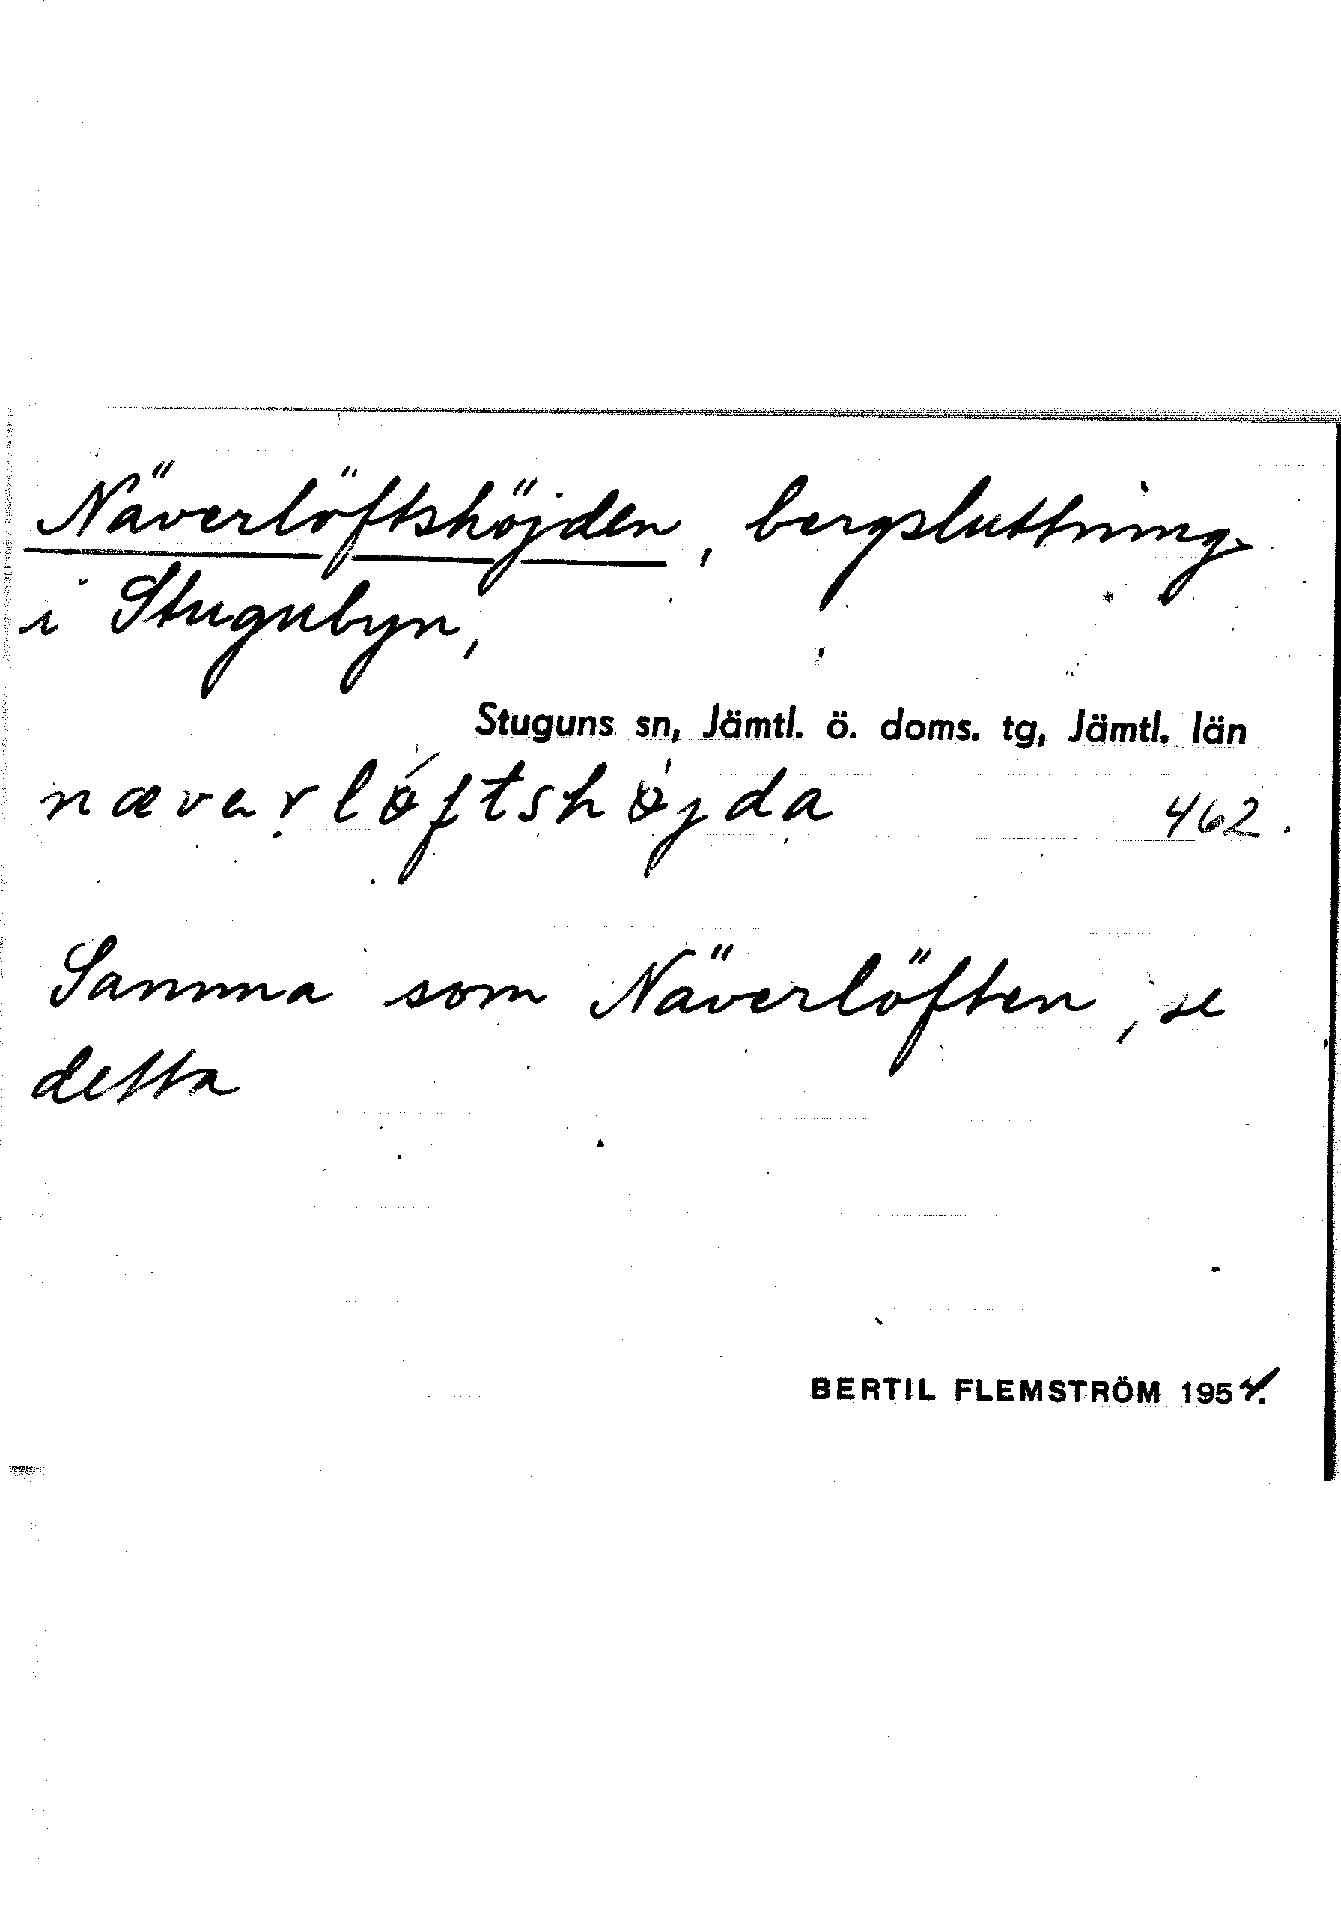 Näverlöftshöjden, bergsluttning
i Stugubyn,
Stuguns sn, Jämtl. ö. doms. tg, Jämtl. län
nævarløftshøjda 462.
Samma som Näverlöften, se
detta
BERTIL FLEMSTRÖM 1954.